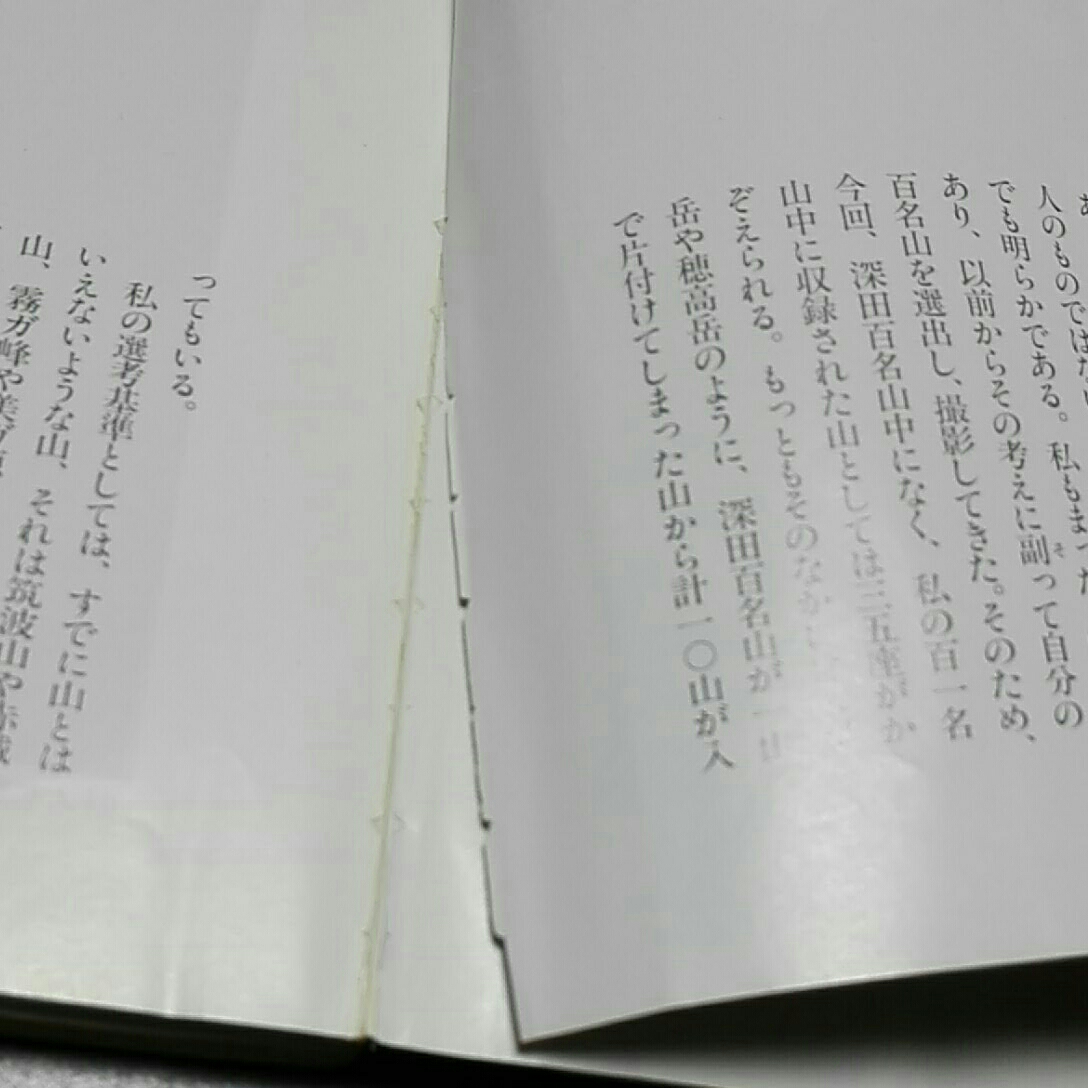 人のものではない
でも明らかである。私もまた
あり、以前からその考えに副って自分の
そ
百名山を選出し、撮影してきた。そのため、
今回、深田百名山中になく、私の百一名
山中に収録された山としては三五座がか
ぞえられる。もっともそのなか
岳や穂高岳のように、深田百名山が一山
で片付けてしまった山から計一〇山が入
ってもいる。
私の選考基準としては、すでに山とは
いえないような山、それは筑波山や赤城
山、霧ガ峰や美ガ